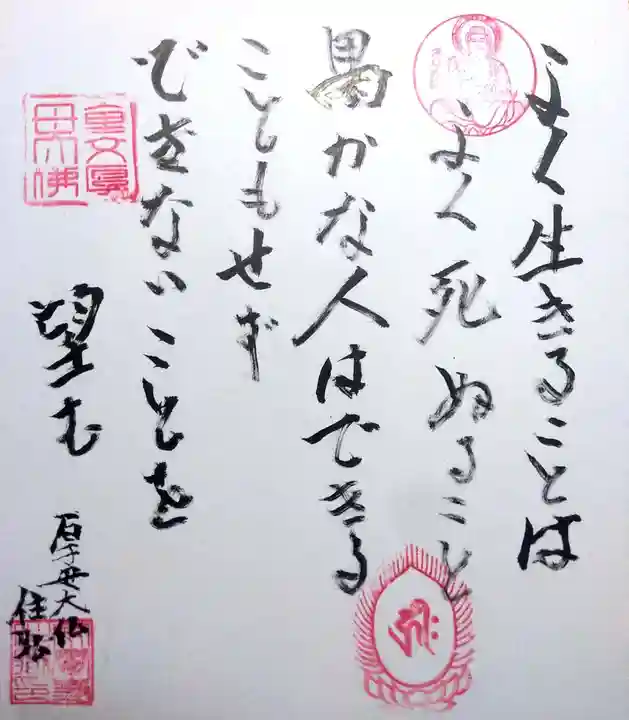 よく生きることは
よく死ぬること
愚かな人はできる
こともせず
できないことを
望む
厚母大仏
住職